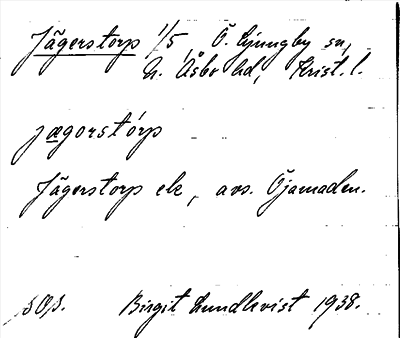 Jägerstorp 1/5, Ö. Ljungby sn,
N. Åsbo hd, Krist. l.
jægorstórp
Jägerstorp ek, avs. Öjamaden.
sOp. Birgit Lundkvist 1938.